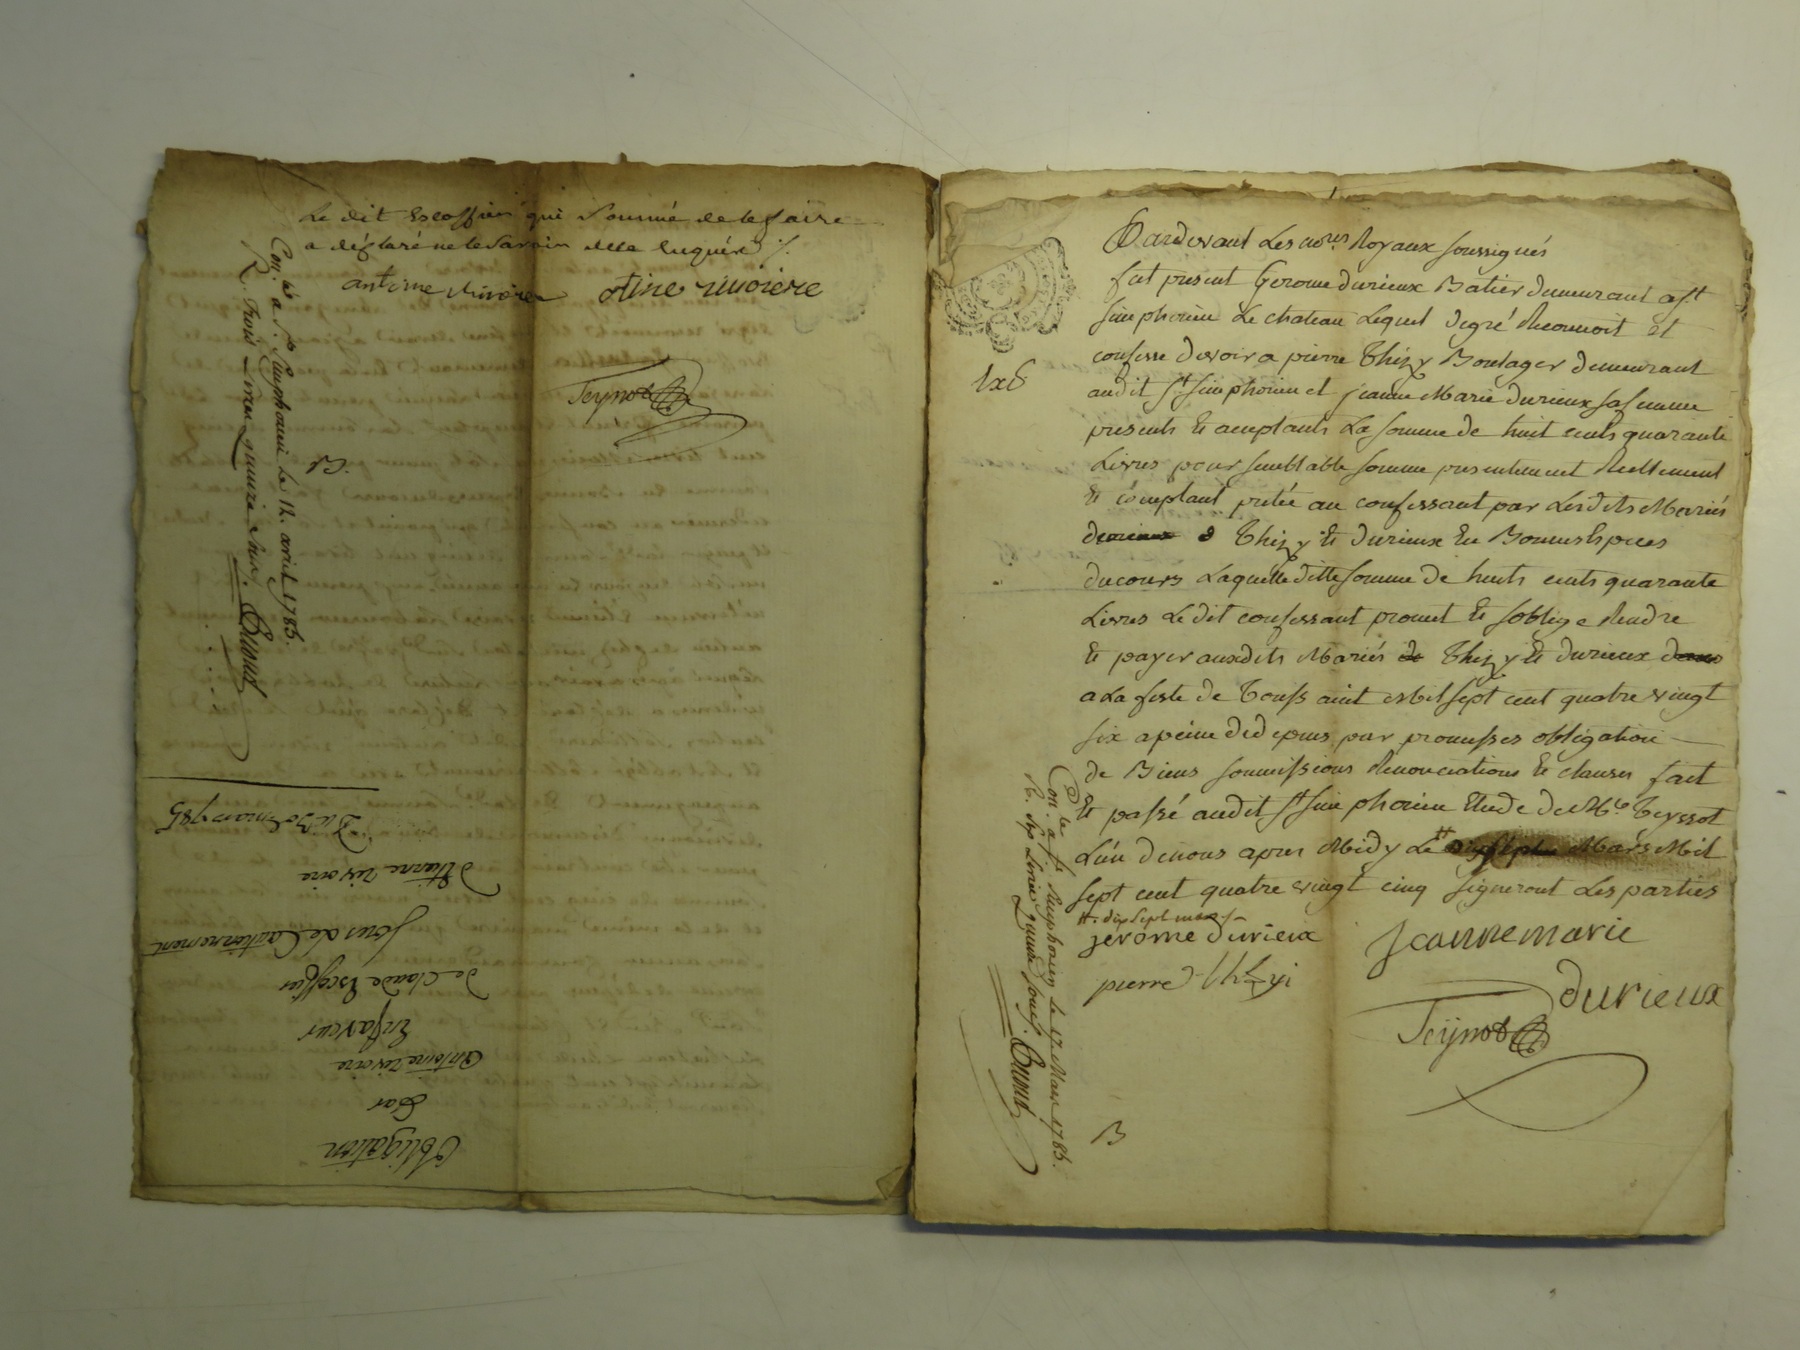 Le dit Escoffier qui sommé de le faire
a déglaré ne le savoir de ce enquéré ./.
antoine Rivoire otine rivoiere
Teyssot
B.
Con.lé a St. Simphorien le 12. avril 1785.
R. trois Livres quinze sous. Brunet
Obligation
Par
Antoine rivoire
En faveur
De Claude Escoffier
sous de Cautionnement
D'Etienne rivoire
Du 30 mars 1785
Pardevant Les no.res Royaux soussignés
fut present Gerome durieux Batier demeurant a St
simphorien Le chateau Lequel degré Reconnoit et
confesse devoir a pierre Thizy Boulager demeurant
audit St simphorien et jeanne Marie durieux sa femme
presents Et aceptants La somme de huit cents quarante
Livres pour semblable somme presentement Reellement
Et comptant pretée au confessant par Lesdits Mariés
durieux Thizy Et durieux En Bonnes Especes
du cours Laquelle ditte somme de huits cents quarante
Livres Le dit confessant promet Et soblige Rendre
Et payer auxdits Mariés de Thizy Et durieux
a La feste de Toussaint Mil sept cent quatre vingt
six a peine de depens par promesses obligation
de Biens soumissions Renonciations Et clauses fait
Et passé audit St simphorien Etude de Me. Teyssot
L'un de nous apres Midy Le # dix sept Mars Mil
sept cent quatre vingt cinq signeront Les parties
#. dix sept mars
jerome durieux jeanne marie
pierre thizi durieux
Teyssot
B
Con.lé a St. Simphorien le 17 Mars 1785.
R. sept Livres quinze sous. Brunet